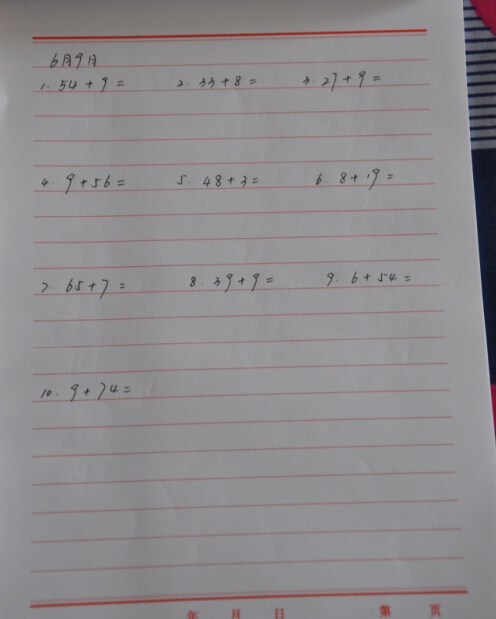 6月9月
1. 54+9= 2. 33+8= 3. 27+9=
4. 9+56= 5. 48+3= 6. 8+19=
7. 65+7= 8. 39+9= 9. 6+54=
10. 9+74=
年 月 日 第 页